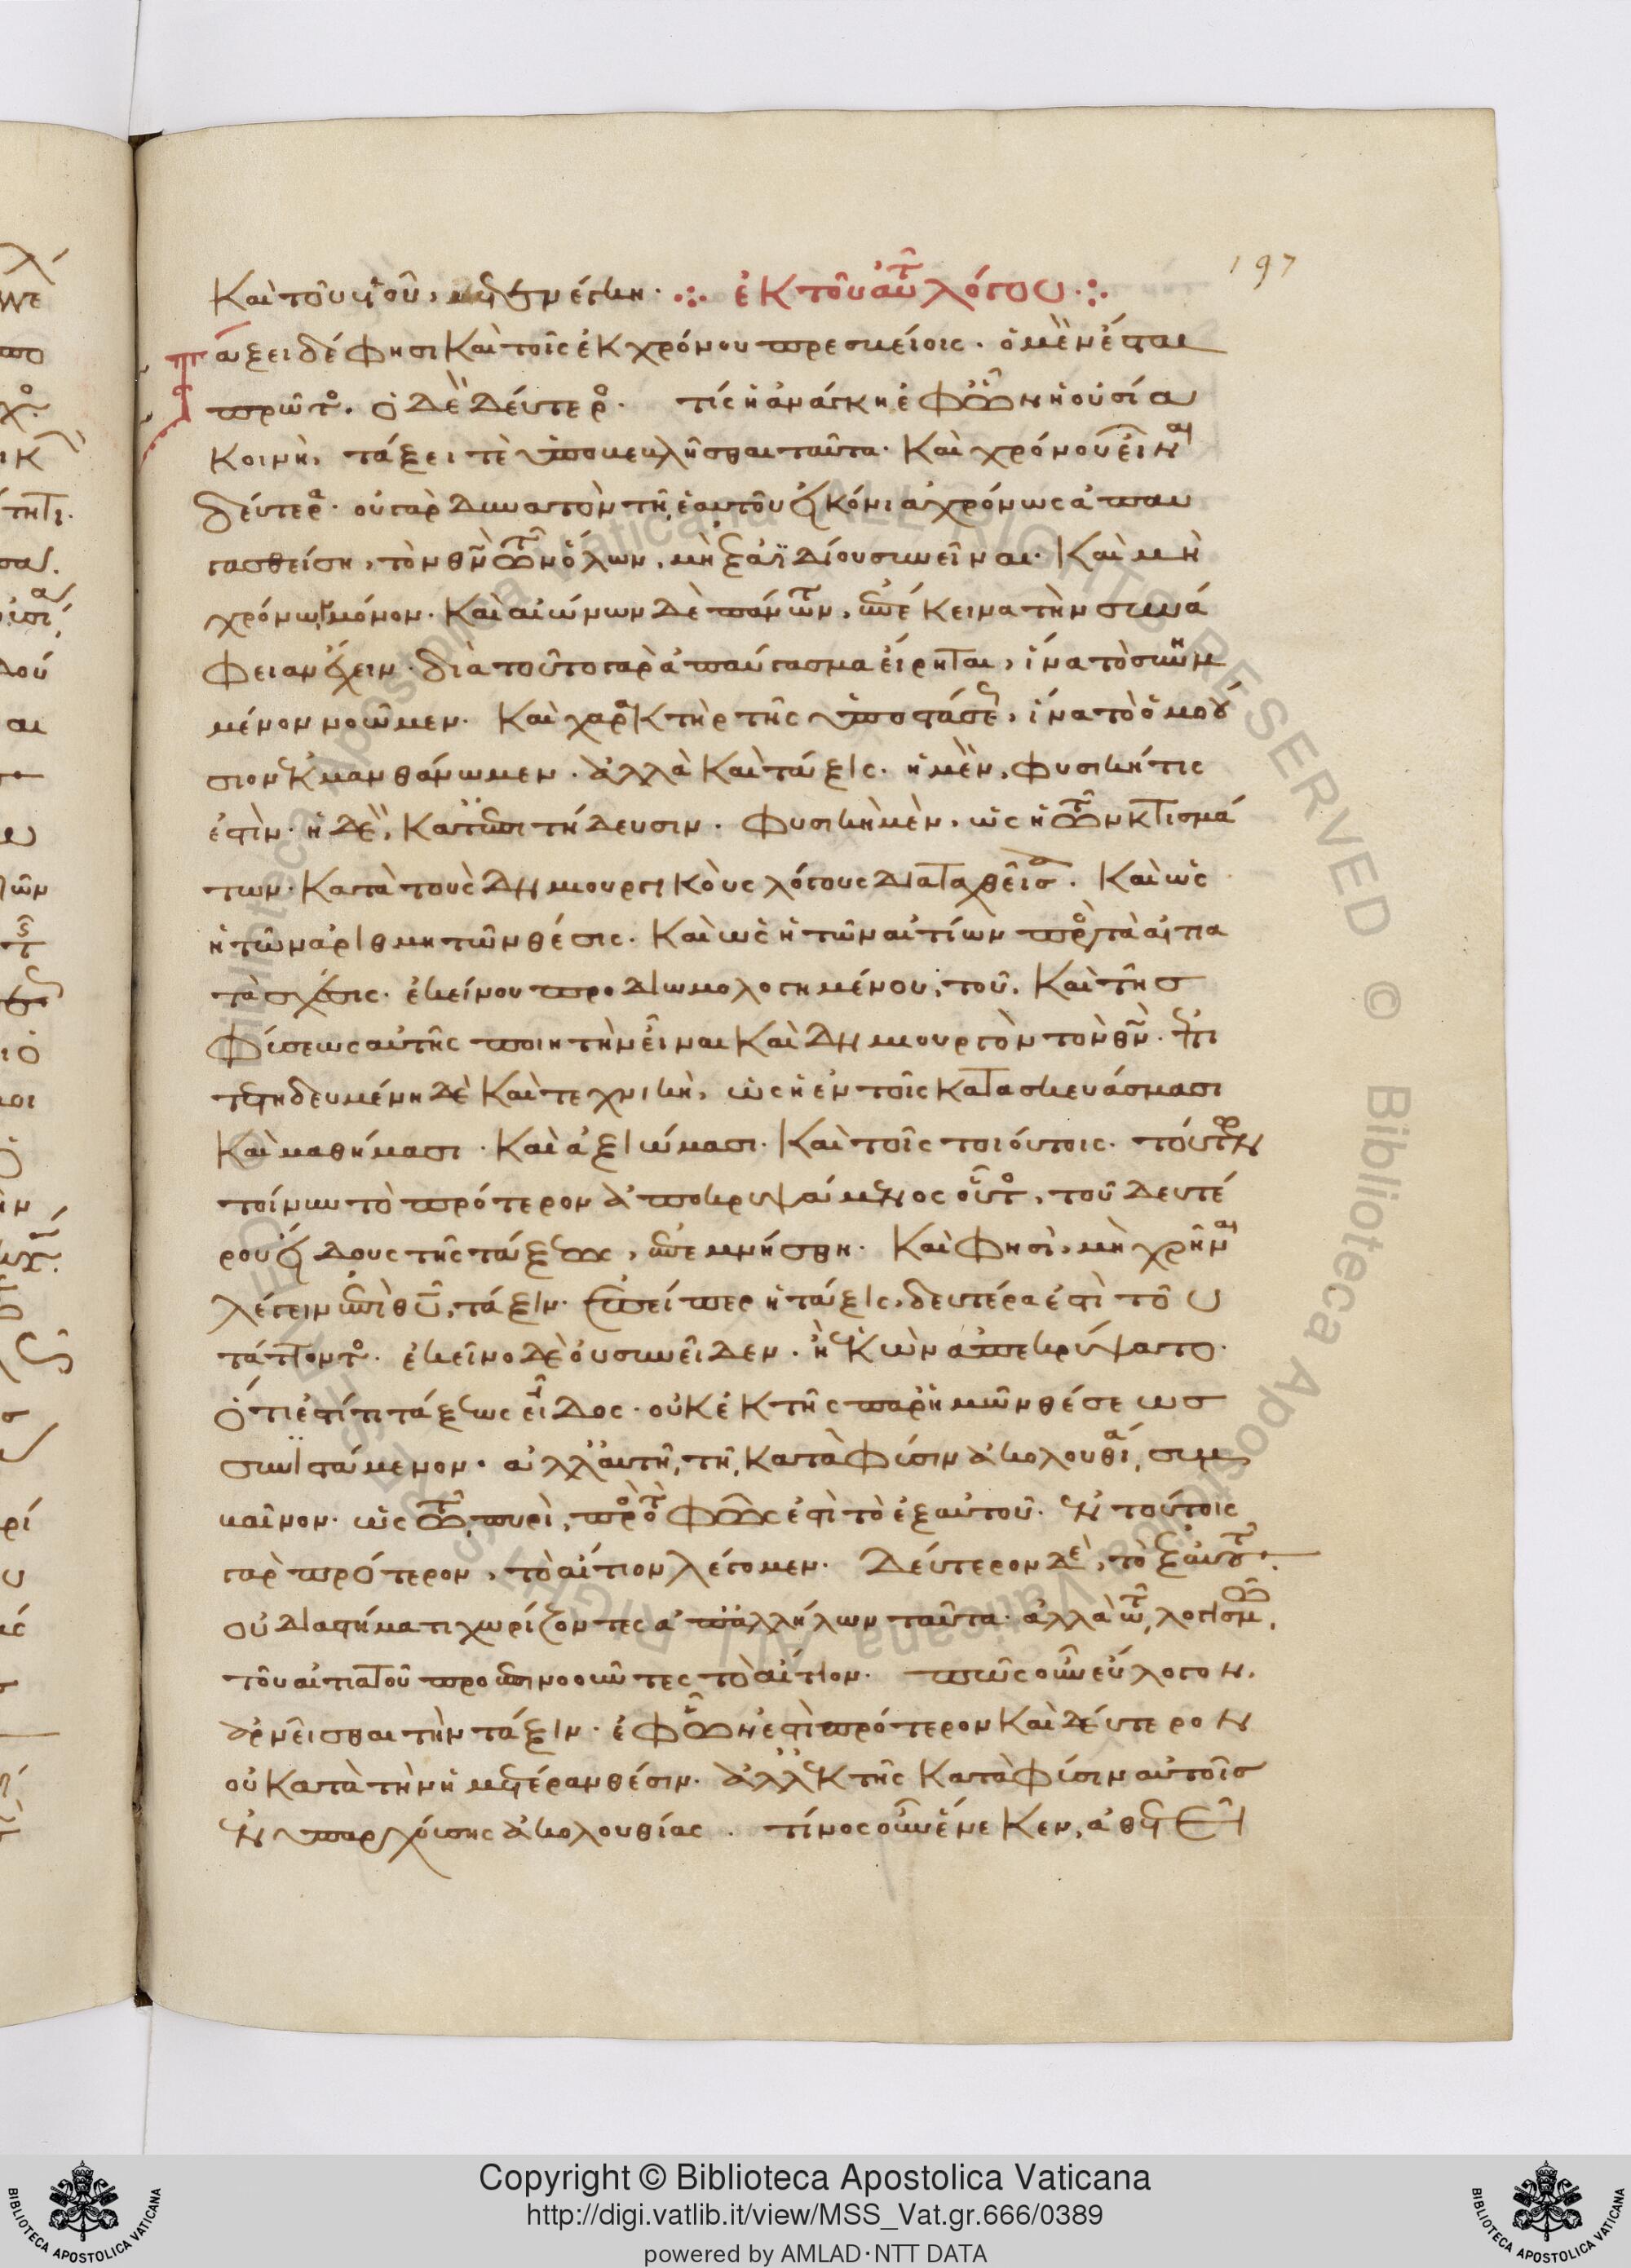 197
καὶ τοῦ υἱοῦ, μεσιτεύειν. ·:· ἐκ τοῦ αὐτοῦ λόγου ·:·
Τάξει δέ φησι καὶ τοῖς ἐκ χρόνου πρεσβείοις. ὁ μὲν ἔσται
πρῶτος. ὁ δὲ δεύτερος. τίς ἡ ἀνάγκη ἐφ' ὧν ἡ οὐσία
κοινὴ, τάξει τὲ ὑποβεβλῆσθαι ταῦτα. καὶ χρόνου εἶναι
δεύτερα. οὐ γὰρ δυνατὸν τῇ ἑαυτοῦ εἰκόνι ἀχρόνως ἀπαυ
γασθείσῃ, τὸν θν τῶν ὅλων, μὴ ἐξ ἀϊδίου συνεῖναι. καὶ μὴ
χρόνων μόνον. καὶ αἰώνων δὲ πάντων, ἐπέκεινα τὴν συνά
φειαν ἔχειν. διὰ τοῦτο γὰρ ἀπαύγασμα εἴρηται, ἵνα τὸ συνημ
μένον νοῶμεν. καὶ χαρακτὴρ τῆς ὑποστάσεως, ἵνα τὸ ὁμοού
σιον ἐκμανθάνωμεν. ἀλλὰ καὶ τάξις. ἡ μὲν, φυσική τις
ἐστὶν. ἡ δὲ, κατ' ἐπιτήδευσιν. φυσικὴ μὲν, ὡς ἡ τῶν κτισμά
των. κατὰ τοὺς δημιουργικοὺς λόγους διαταχθεῖσα. καὶ ὡς
ἡ τῶν ἀριθμητῶν θέσις. καὶ ὡς ἡ τῶν αἰτίων πρὸς τὰ αἰτια
τὰ σχέσις. ἐκείνου προδιωμολογημένου, τοῦ, καὶ τῆς
φύσεως αὐτῆς ποιητὴν εἶναι καὶ δημιουργὸν τὸν θν. ἐπι
τετηδευμένη δὲ καὶ τεχνικὴ, ὡς ἡ ἐν τοῖς κατασκευάσμασι
καὶ μαθήμασι. καὶ ἀξιώμασι. καὶ τοῖς τοιούτοις. τούτων
τοίνυν τὸ πρότερον ἀποκρυψάμενος οὗτος, τοῦ δευτέ
ρου εἴδους τῆς τάξεως, ἐπεμνήσθη. καὶ φησὶ, μὴ χρῆναι
λέγειν ἐπὶ θυ, τάξιν. ἐπείπερ ἡ τάξις, δευτέρα ἐστὶ τοῦ
τάττοντος. ἐκεῖνο δὲ οὐ συνεῖδεν. ἢ ἑκὼν ἀπεκρύψατο.
ὅτι ἐστί τι τάξεως εἶδος. οὐκ ἐκ τῆς παρ' ἡμῶν θέσεως
συνϊστάμενον. ἀλλ' αὐτῇ, τῇ κατὰ φύσιν ἀκολουθίᾳ, συμ
βαῖνον. ὡς τῶ πυρὶ, πρὸς τὸ φῶς ἐστὶ τὸ ἐξ αὐτοῦ. ἐν τούτοις
γὰρ πρότερον, τὸ αἴτιον λέγομεν. δεύτερον δὲ, τὸ ἐξ αὐτοῦ.
οὐ διαστήματι χωρίζοντες ἀπ' ἀλλήλων ταῦτα. ἀλλὰ τῶ λογισμῶ,
τοῦ αἰτιατοῦ προεπινοοῦντες τὸ αἴτιον. πῶς οὖν εὔλογον,
ἀρνεῖσθαι τὴν τάξιν. ἐφ' ὧν ἐστὶ πρότερον καὶ δεύτερον
οὐ κατὰ τὴν ἡμετέραν θέσιν. ἀλλ' ἐκ τῆς κατὰ φύσιν αὐτοῖς
ἐνυπαρχούσης ἀκολουθίας. τίνος οὖν ἕνεκεν, ἀθετεῖ
Copyright © Biblioteca Apostolica Vaticana
http://digi.vatlib.it/view/MSS_Vat.gr.666/0389
powered by AMLAD·NTT DATA